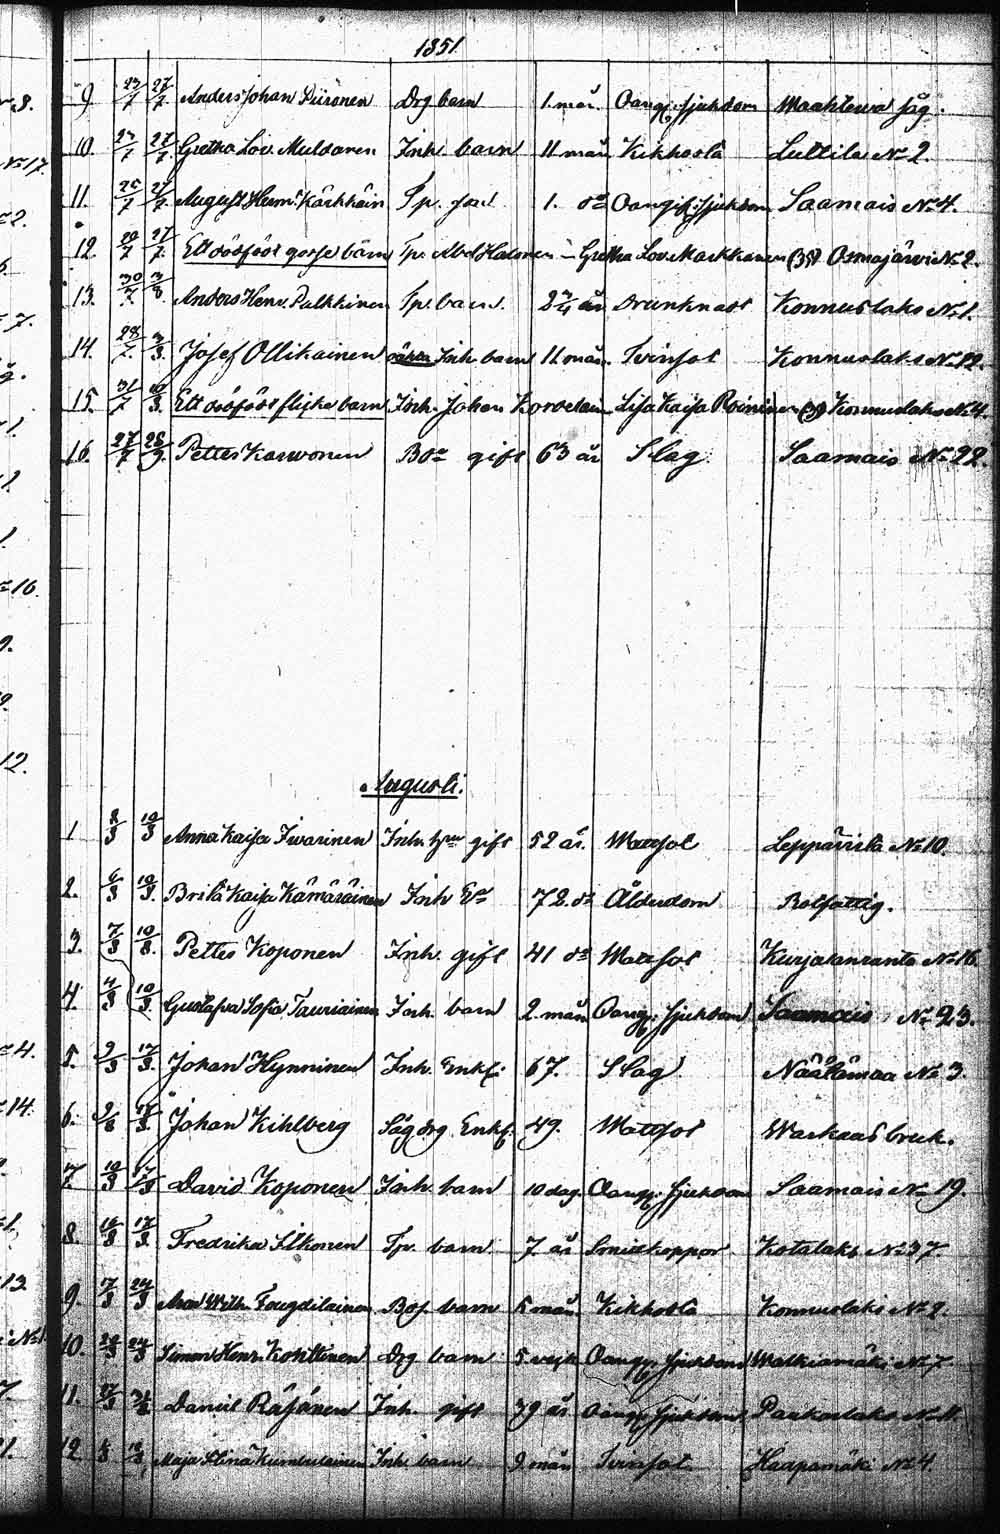 1851
9. 23/7 27/7 Anders Johan Piironen Drg barn 1. mån. Oangif. sjukdom Maahlewa såg.
10. 23/7 27/7 Gretha Lov. Muldonen Inh. barn 11 mån Kikhosta Luttila No 2.
11. 25/7 27/7 August Herm. Kärkkäin Tp. son 1. do Oangif. sjukdom Saamais No 4.
12. 20/7 27/7 Ett dödfödt gosse barn Tp. Abel Halonen Gretha Lov. Markkanen (35) Osmajärvi No 2.
13. 30/7 3/8 Anders Henr. Pulkkinen Tp. barn. 2 3/4 år Drunknad Konnuslaks No 1.
14. 28/7 3/8 Josef Ollikainen Inh. barn 11 mån. Tvinsot Konnuslaks No 12.
15. 31/7 10/8 Ett dödfödt flicke barn Inh. Johan Korvelain Lisa Kaisa Roininen Konnuslaks No 4.
16. 27/7 28/9 Petter Karvonen Bde gift 63 år Slag Saamais No 22.
Augusti.
1 2/8 10/8 Anna Kaisa Iivarinen Inh. hru gift 52 år. Mattsot Leppävirta No 10.
2. 6/8 10/8 Brita Kaisa Kämäräinen Inh Ea 72. do Ålderdom Rotfattig.
3. 7/8 10/8 Petter Koponen Inh. gift 41 do Mattsot Kurjalanranta No 16.
4. 4/8 10/8 Gustafva Sofia Tauriainen Inh. barn 2. mån Oangif. sjukdom Saamais No 23.
5. 9/8 17/8 Johan Hynninen Inh. Enkl. 67. Slag Näätämaa No 3.
6. 9/8 17/8 Johan Kihlberg Såg drg Enkl. 49. Mattsot Warkaus bruk.
7. 10/8 17/8 David Koponen Inh. barn 10 dag. Oangif. sjukdom Saamais No 19.
8. 16/8 17/8 Fredrika Ilkonen Tp. barn 7 år Smittkoppor Kotalaks No 37
9. 17/8 24/8 Aron Wilh. Tougdilainen Bos. barn 5 mån. Kikhosta Konnuslaks No 2.
10. 22/8 24/8 Simon Henr. Konttinen Drg barn 5 veck Oangif. sjukdom Walkiamäki No 7
11. 27/8 31/8 Daniel Räsänen Inh. gift 39 år Oangif. sjukdom Paukarlaks No 11.
12. Maja Stina Kumbulainen Inh. barn 9 mån Tvinsot. Haapamäki No 4.